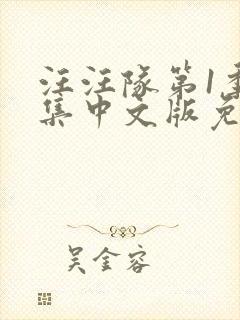 汪汪队第1季
集中文版免
吴金容